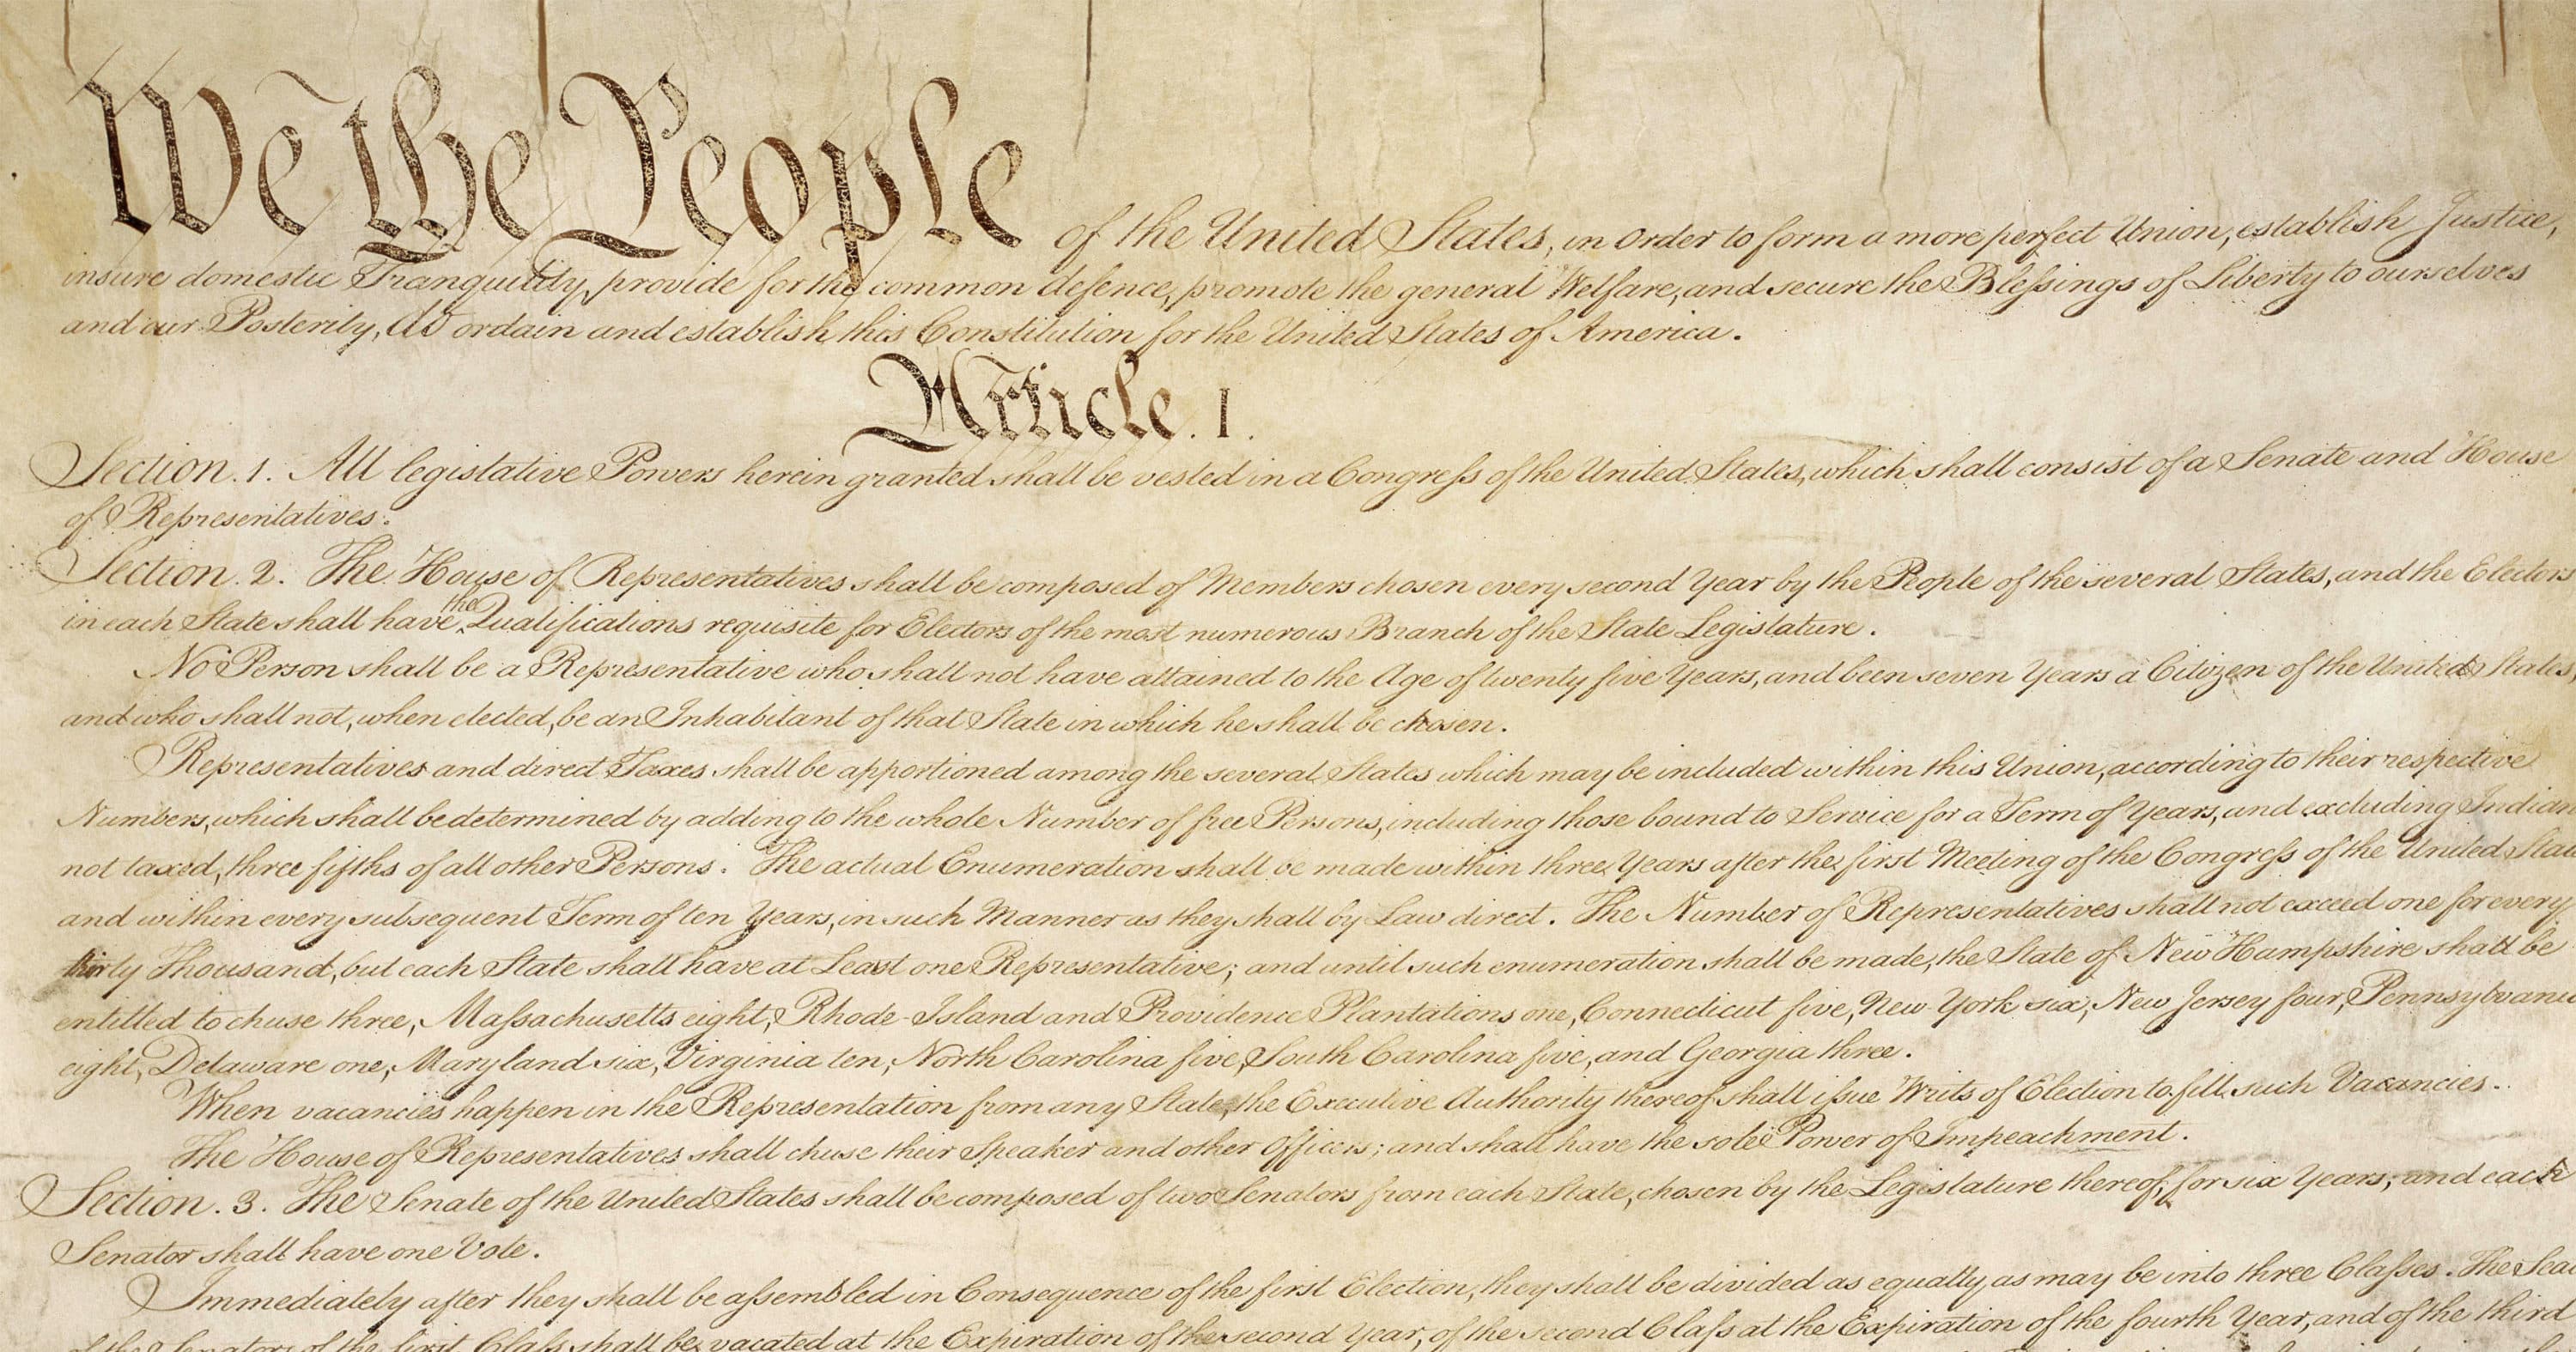 We the People of the United States, in Order to form a more perfect Union, establish Justice,
insure domestic Tranquility, provide for the common defence, promote the general Welfare, and secure the Blessings of Liberty to ourselves
and our Posterity, do ordain and establish this Constitution for the United States of America.
Article. I.
Section. 1. All legislative Powers herein granted shall be vested in a Congress of the United States, which shall consist of a Senate and House
of Representatives.
Section. 2. The House of Representatives shall be composed of Members chosen every second Year by the People of the several States, and the Electors
in each State shall have the Qualifications requisite for Electors of the most numerous Branch of the State Legislature.
No Person shall be a Representative who shall not have attained to the Age of twenty five Years, and been seven Years a Citizen of the United States,
and who shall not, when elected, be an Inhabitant of that State in which he shall be chosen.
Representatives and direct Taxes shall be apportioned among the several States which may be included within this Union, according to their respective
Numbers, which shall be determined by adding to the whole Number of free Persons, including those bound to Service for a Term of Years, and excluding Indian
not taxed, three fifths of all other Persons. The actual Enumeration shall be made within three Years after the first Meeting of the Congress of the United Stat
and within every subsequent Term of ten Years, in such Manner as they shall by Law direct. The Number of Representatives shall not exceed one for every
thirty Thousand, but each State shall have at Least one Representative; and until such enumeration shall be made, the State of New Hampshire shall be
entitled to chuse three, Massachusetts eight, Rhode-Island and Providence Plantations one, Connecticut five, New-York six, New Jersey four, Pennsylvania
eight, Delaware one, Maryland six, Virginia ten, North Carolina five, South Carolina five, and Georgia three.
When vacancies happen in the Representation from any State, the Executive Authority thereof shall issue Writs of Election to fill such Vacancies.
The House of Representatives shall chuse their Speaker and other Officers; and shall have the sole Power of Impeachment.
Section. 3. The Senate of the United States shall be composed of two Senators from each State, chosen by the Legislature thereof, for six Years; and each
Senator shall have one Vote.
Immediately after they shall be assembled in Consequence of the first Election, they shall be divided as equally as may be into three Classes. The Sea
of the Senators of the first Class shall be vacated at the Expiration of the second Year, of the second Class at the Expiration of the fourth Year, and of the third